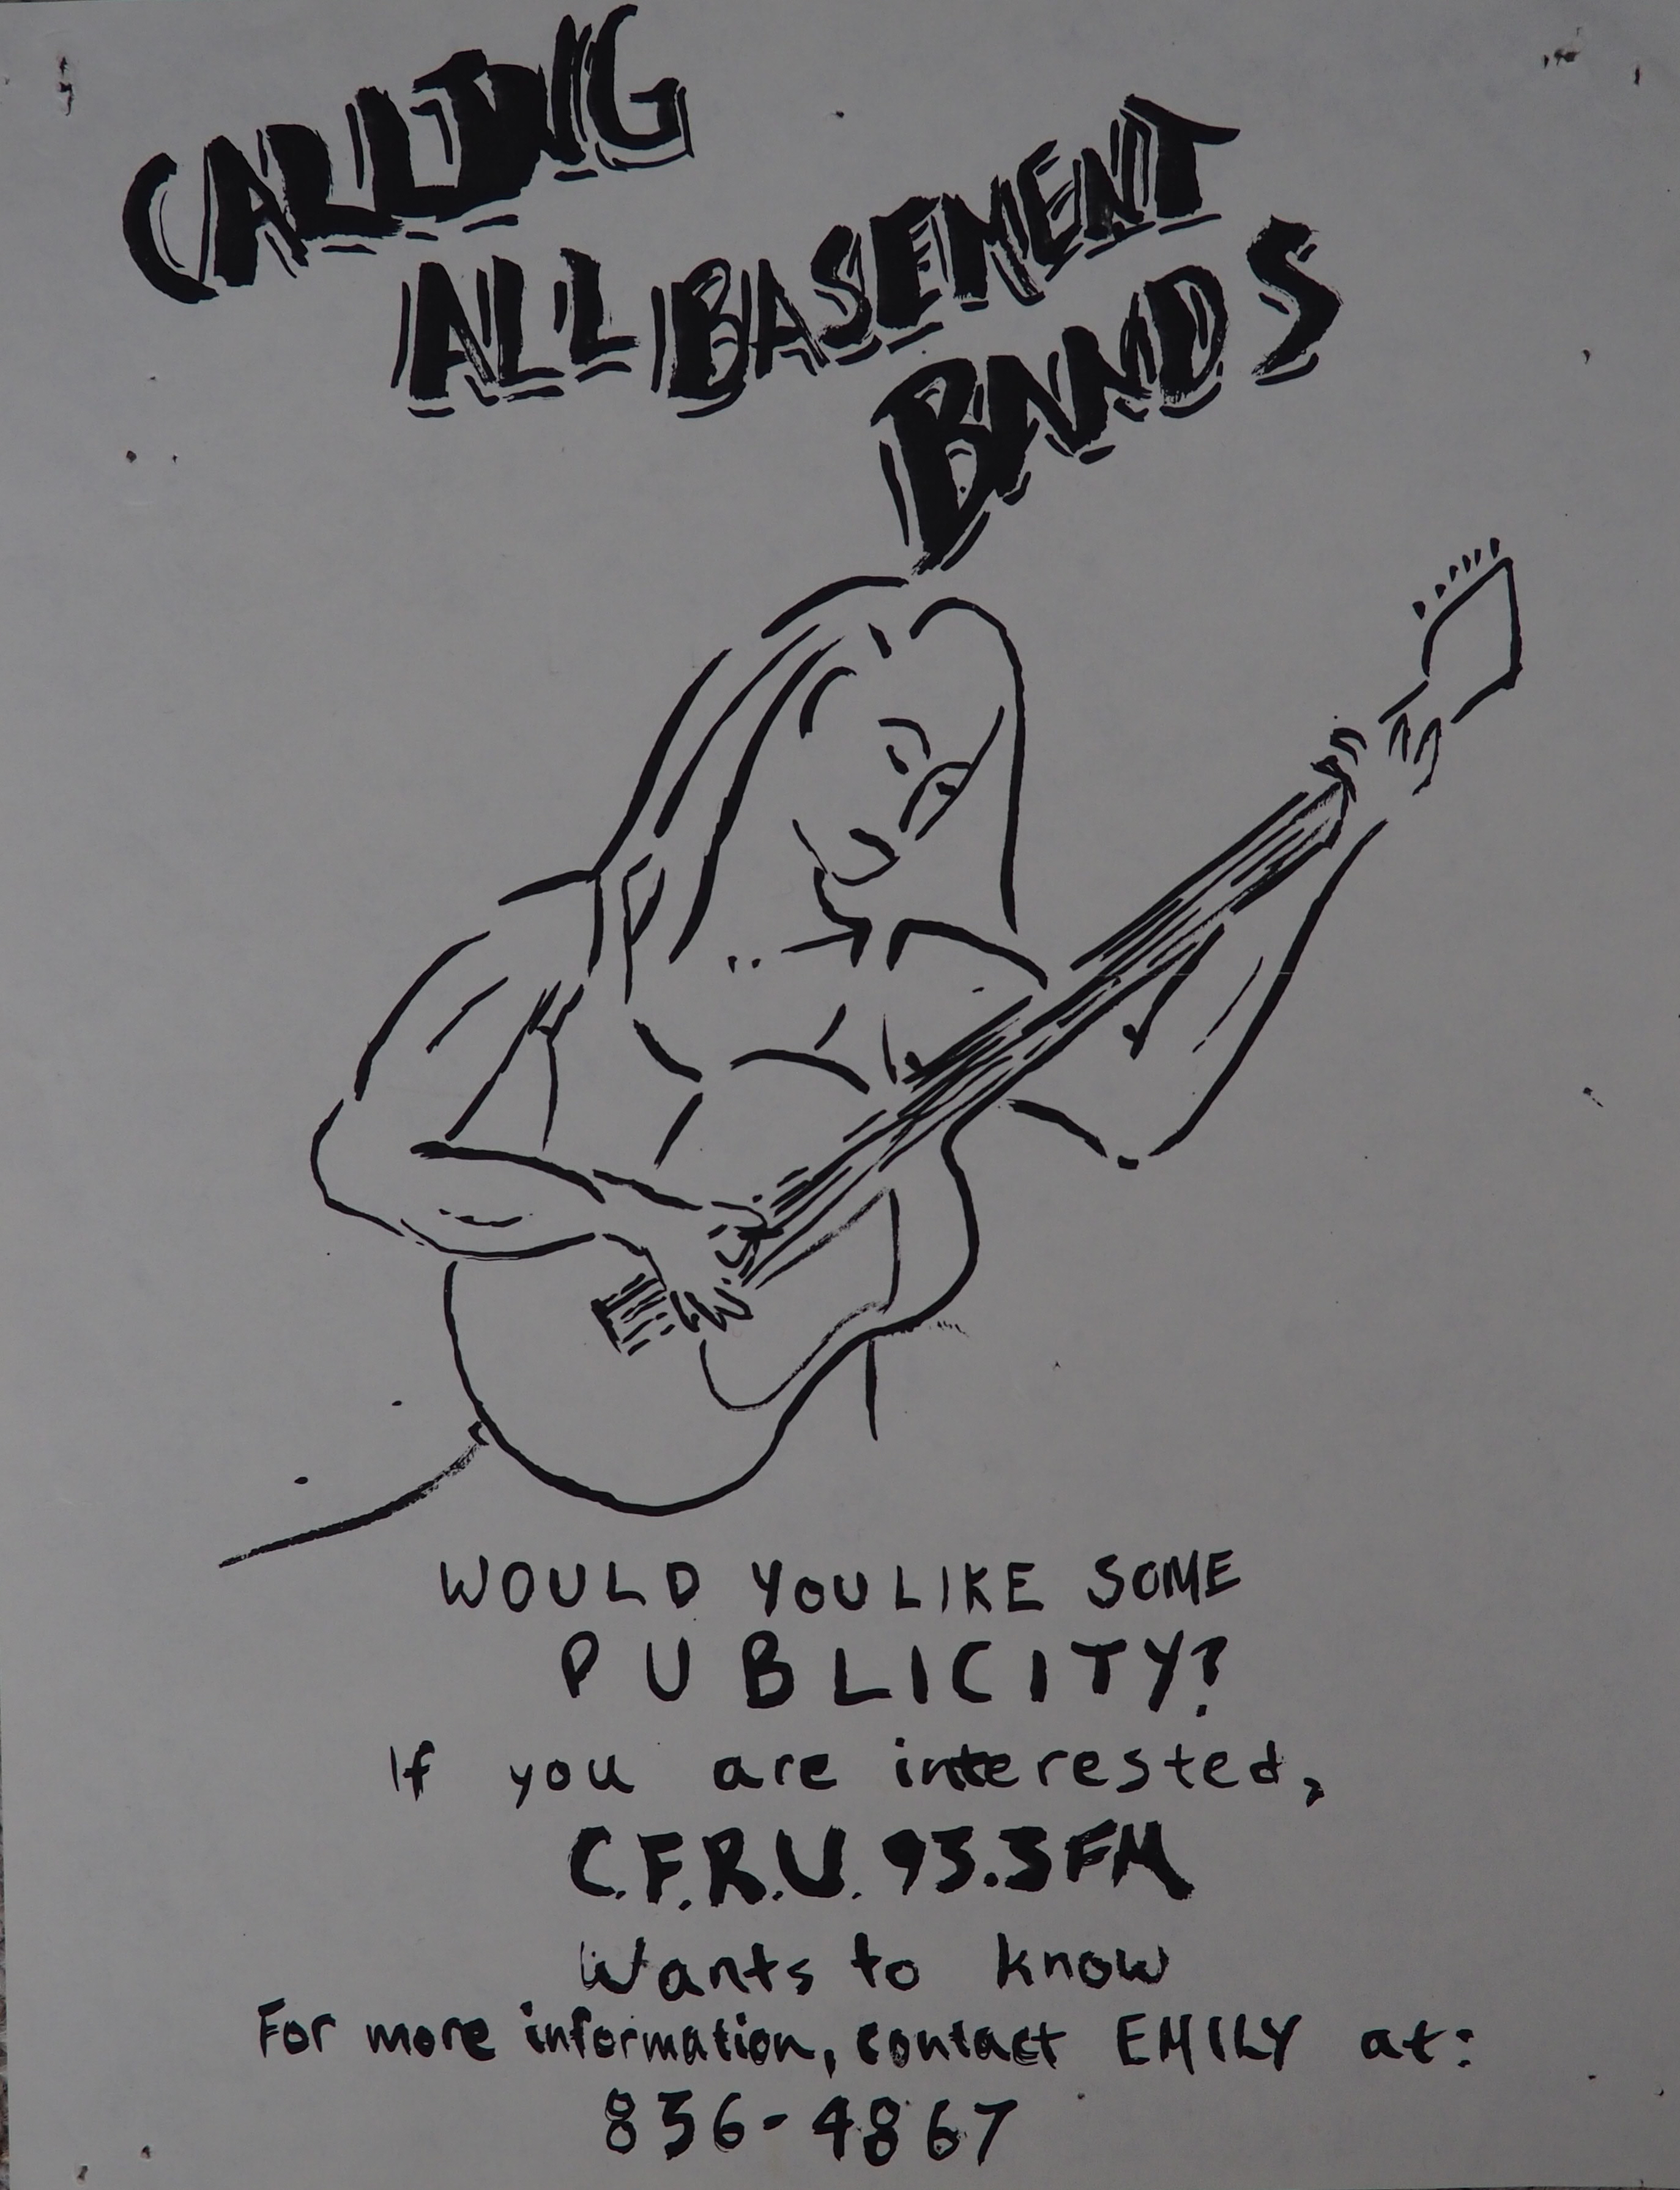 CALLING
ALL BASEMENT
BANDS
WOULD YOU LIKE SOME
PUBLICITY?
If you are interested,
C.F.R.U. 93.3 FM
Wants to know
For more information, contact EMILY at:
836-4867